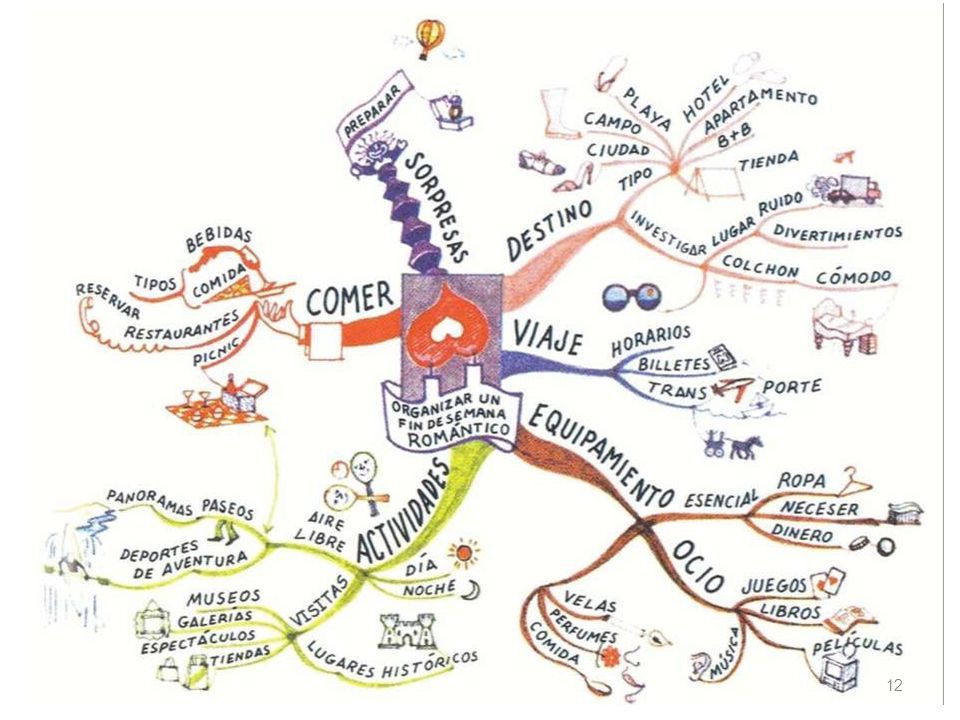 PREPARAR
SORPRESAS
DESTINO
TIPO
CIUDAD
CAMPO
PLAYA
HOTEL
APARTAMENTO
B+B
TIENDA
INVESTIGAR
LUGAR
RUIDO
DIVERTIMIENTOS
COLCHON
CÓMODO
VIAJE
HORARIOS
BILLETES
TRANS PORTE
EQUIPAMIENTO
ESENCIAL
ROPA
NECESER
DINERO
OCIO
JUEGOS
LIBROS
PELÍCULAS
MÚSICA
VELAS
PERFUMES
COMIDA
ACTIVIDADES
AIRE
LIBRE
PASEOS
PANORAMAS
DEPORTES
DE AVENTURA
DÍA
NOCHE
VISITAS
MUSEOS
GALERÍAS
ESPECTÁCULOS
TIENDAS
LUGARES HISTÓRICOS
COMER
BEBIDAS
COMIDA
TIPOS
RESERVAR
RESTAURANTES
PICNIC
ORGANIZAR UN
FIN DE SEMANA
ROMÁNTICO
12